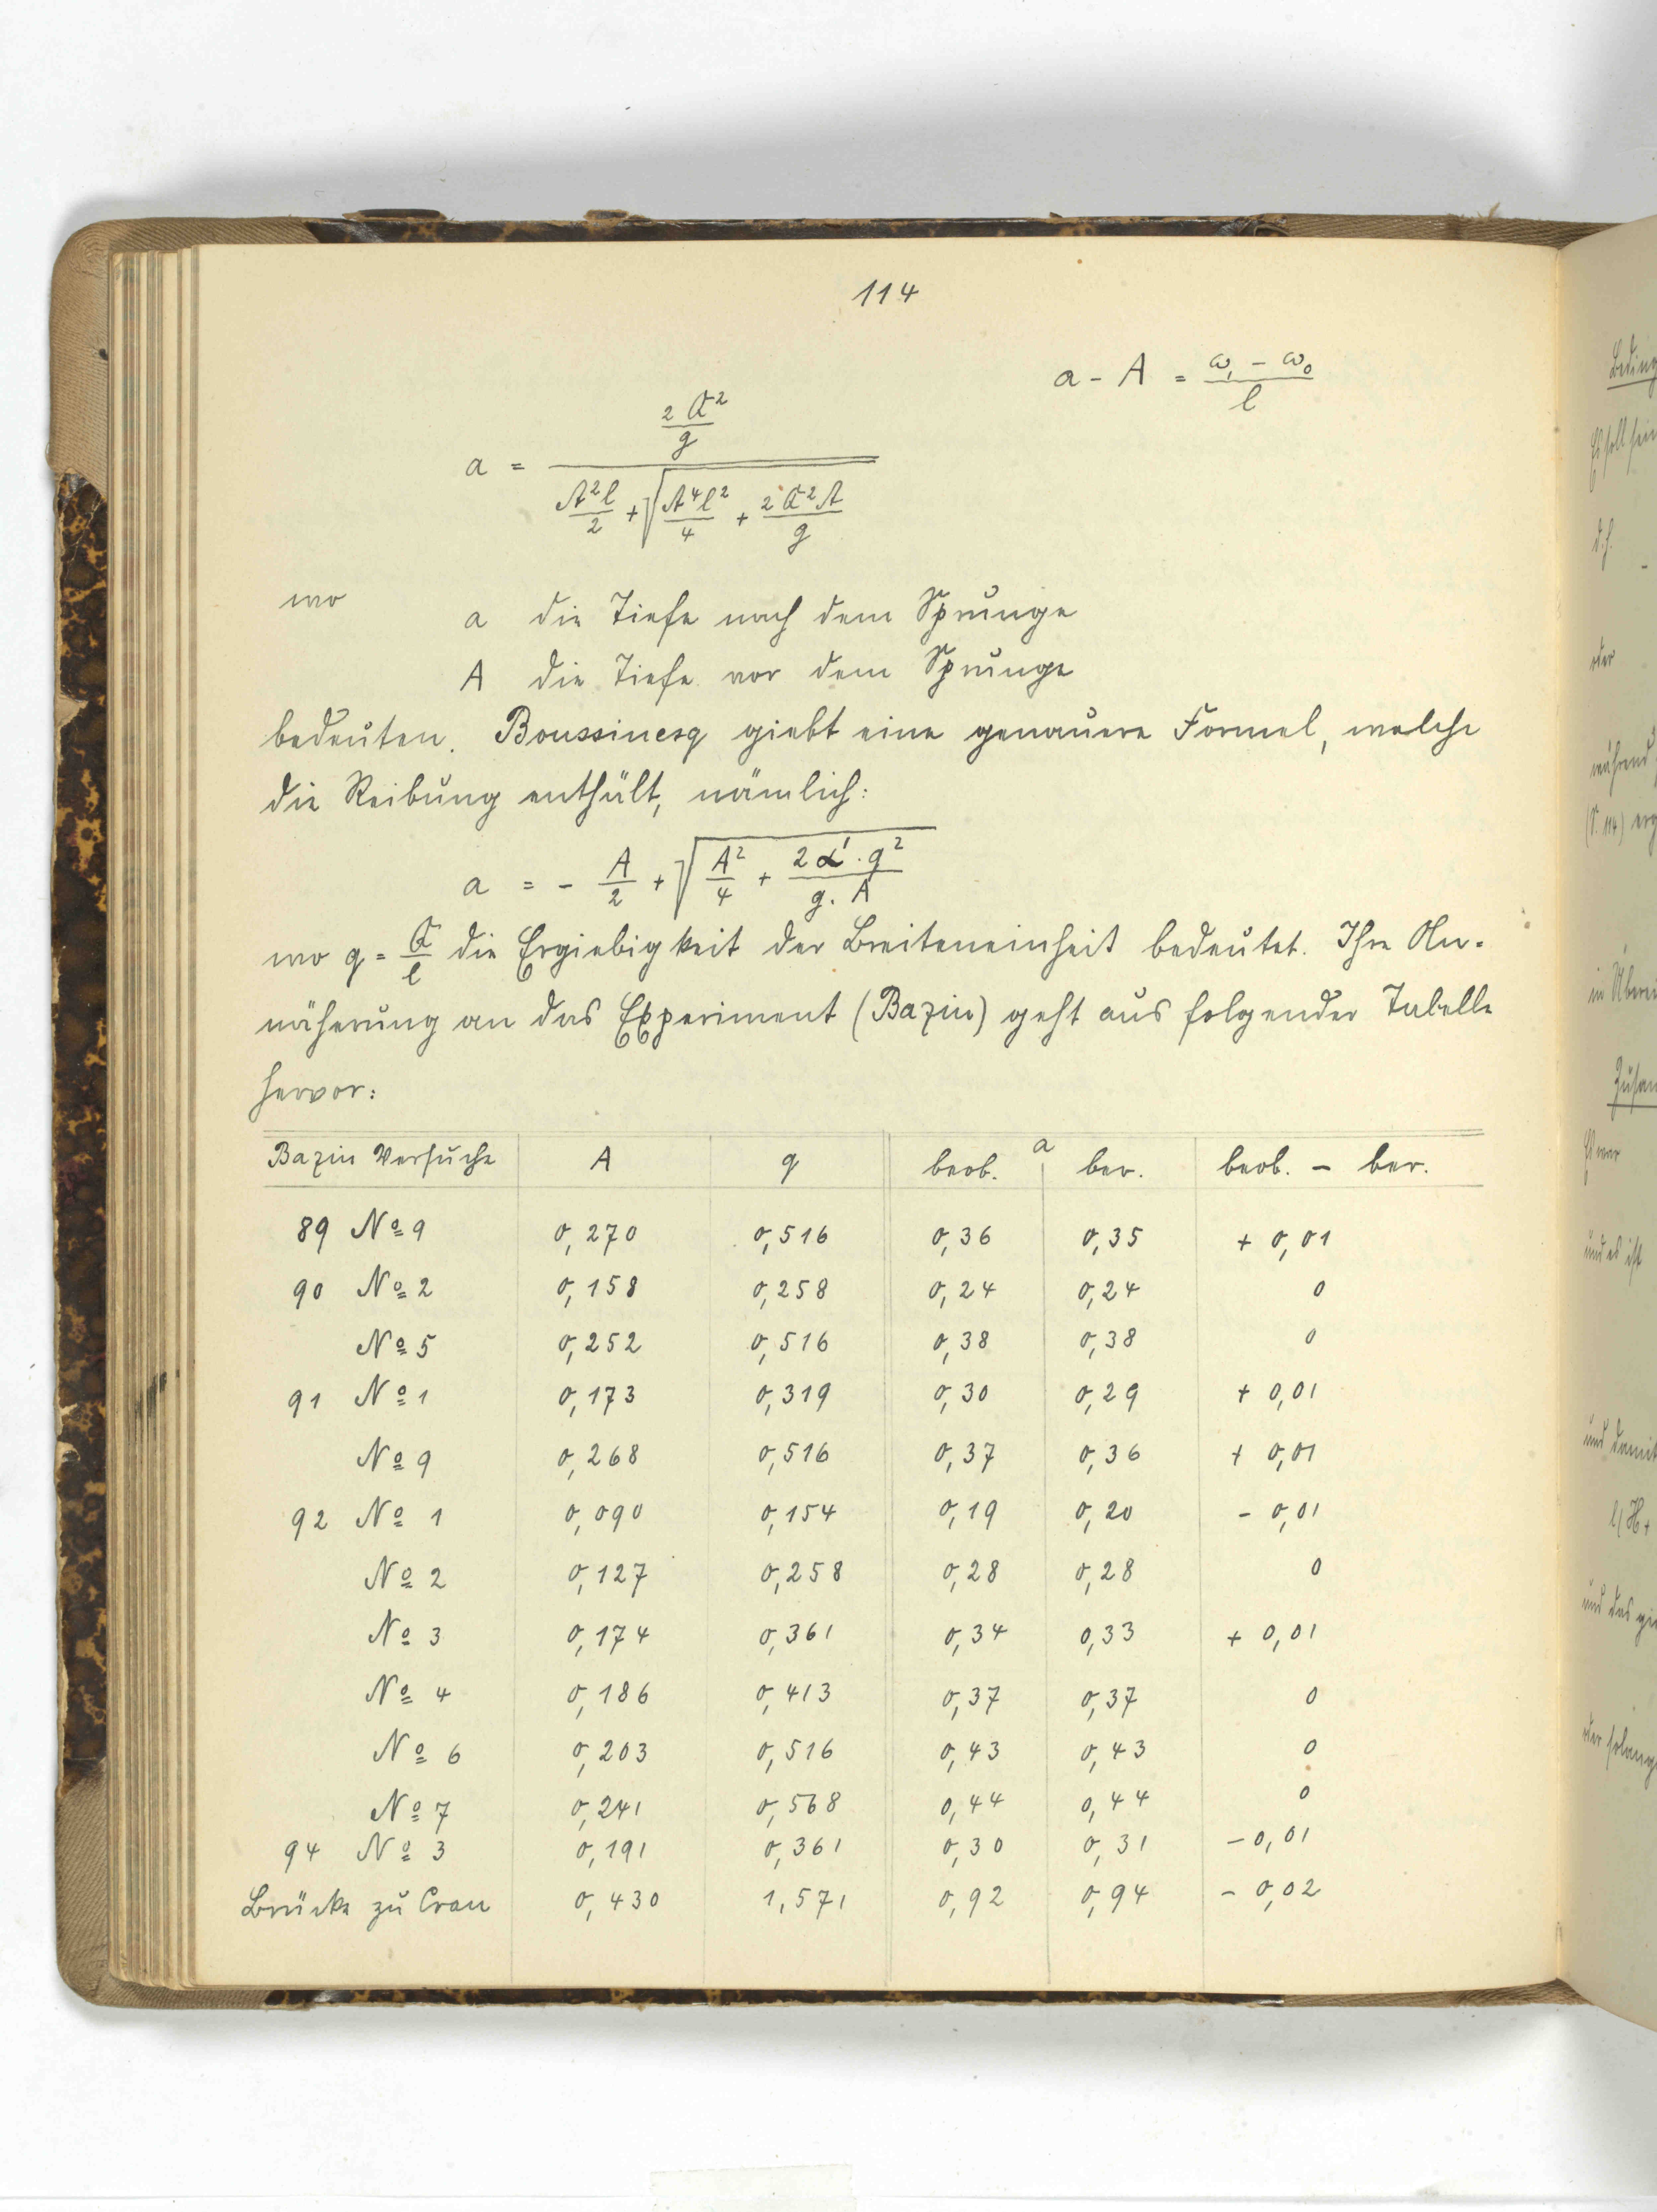 114
a - A = (ω₁ - ω₀)/l
a = (2Q²/g) / (A²l/2 + √(A⁴l²/4 + 2Q²A/g))
wo a die Tiefe nach dem Sprunge
A die Tiefe vor dem Sprunge
bedeuten. Boussinesq giebt eine genauere Formel, welche
die Reibung enthält, nämlich:
a = - A/2 + √(A²/4 + 2α'·q²/g.A)
wo q = Q/l die Ergiebigkeit der Breiteneinheit bedeutet. Ihre An-
näherung an das Experiment (Bazin) geht aus folgender Tabelle
hervor:
Bazin Versuche A q a beob. ber. beob. - ber.
89 Nº 9 0,270 0,516 0,36 0,35 + 0,01
90 Nº 2 0,158 0,258 0,24 0,24 0
Nº 5 0,252 0,516 0,38 0,38 0
91 Nº 1 0,173 0,319 0,30 0,29 + 0,01
Nº 9 0,268 0,516 0,37 0,36 + 0,01
92 Nº 1 0,090 0,154 0,19 0,20 - 0,01
Nº 2 0,127 0,258 0,28 0,28 0
Nº 3 0,174 0,361 0,34 0,33 + 0,01
Nº 4 0,186 0,413 0,37 0,37 0
Nº 6 0,203 0,516 0,43 0,43 0
Nº 7 0,241 0,568 0,44 0,44 0
94 Nº 3 0,191 0,361 0,30 0,31 - 0,01
Brücke zu Crau 0,430 1,571 0,92 0,94 - 0,02
d.h.
oder
während
(S. 114)
und es ist
und damit